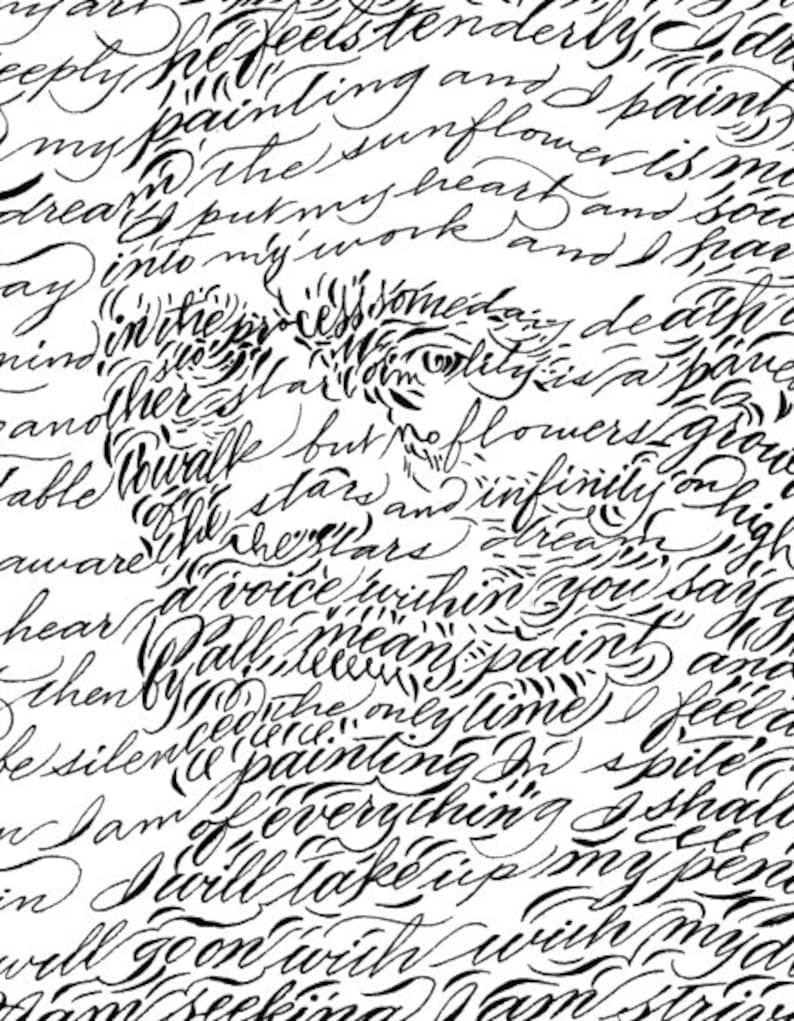 my art
deeply he feels tenderly, I dre
painting and I paint
my
dream the sunflower is mi
dream I put my heart and sou
into my work and I hav
ay
in the process someday death
mind
another star is a pave
and
to walk but no flowers grow
able
of the stars and infinity on high
aware the stars dream
a voice within you say
hear
By all means paint and
then
the only time I feel a
be silenced
painting In spite
I am of everything I shall
in I will take up my pen
will go on with with my d
I am seeking I am striv